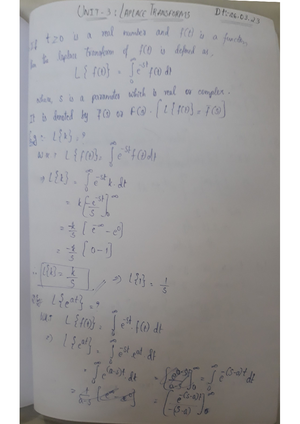 UNIT-3: LAPLACE TRANSFORMS
Dt: 06.02.23
If t≥0 is a real number and f(t) is a function
then the laplace Transform of f(t) is defined as,
L{f(t)} = ∫₀^∞ e^-st f(t) dt
where, s is a parameter which is real or complex.
It is denoted by f̄(s) or F(s). [L{f(t)} = f̄(s)]
Eg:- L{k} = ?
w.k.t L{f(t)} = ∫₀^∞ e^-st f(t) dt
⇒ L{k} = ∫₀^∞ e^-st k. dt
= k [e^-st / -s]₀^∞
= -k/s [e^-∞ - e^0]
= -k/s [0-1]
∴ L{k} = k/s ⇒ L{1} = 1/s
L{e^at} = ?
L{f(t)} = ∫₀^∞ e^-st. f(t) dt
⇒ L{e^at} = ∫₀^∞ e^-st. e^at dt
= ∫₀^∞ e^(a-s)t dt = ∫₀^∞ e^-(s-a)t dt
= [e^-(s-a)t / -(s-a)]₀^∞